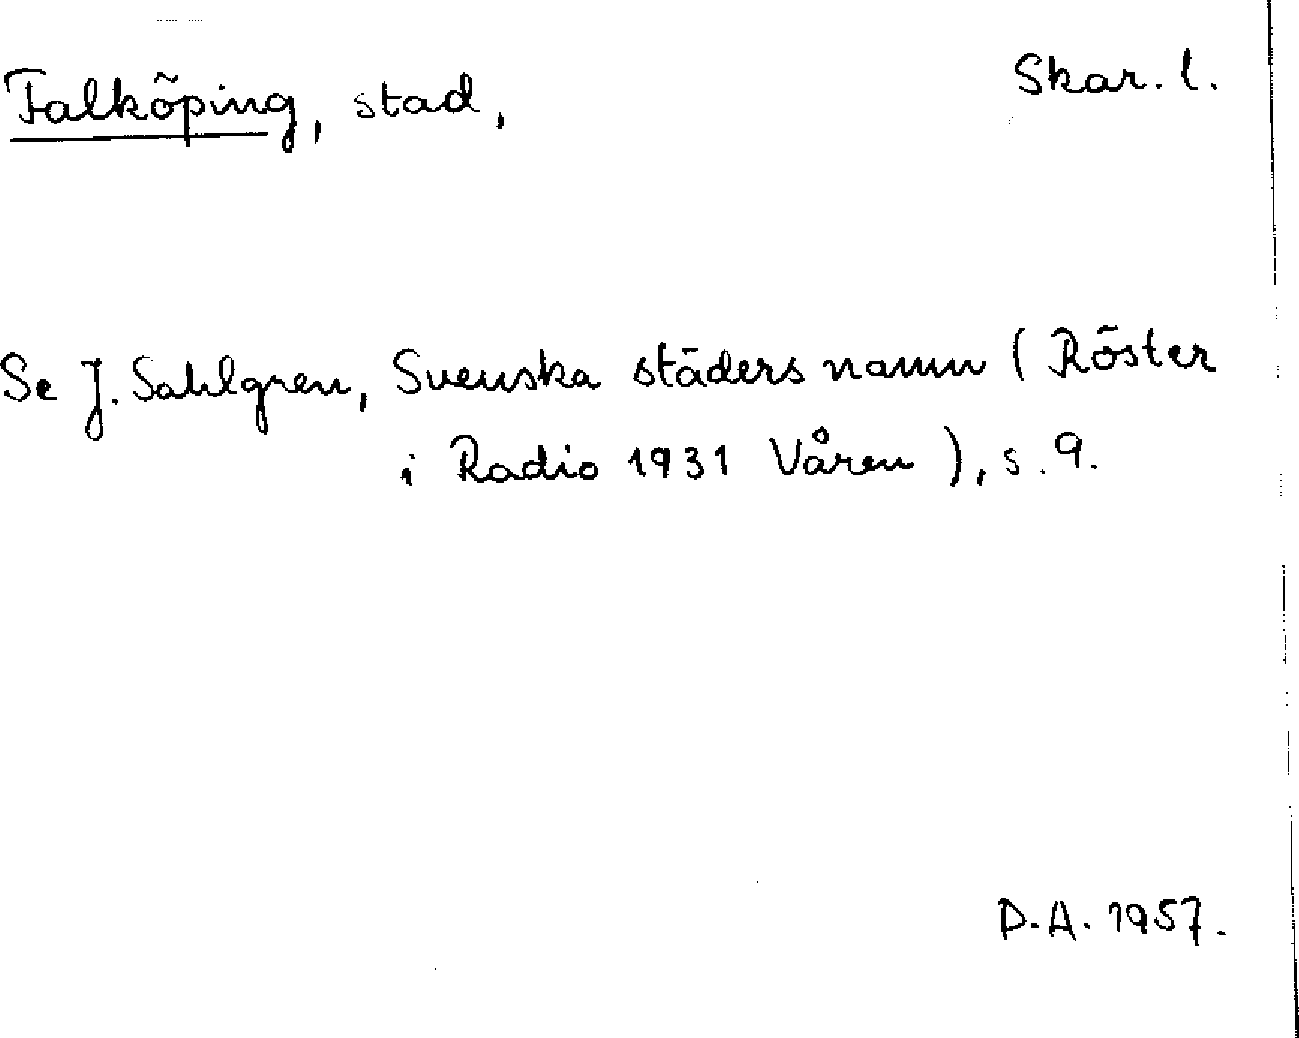 Falköping, stad, Skar. l.
Se J. Sahlgren, Svenska städers namn (Röster
i Radio 1931 Våren), s. 9.
D.A. 1957.